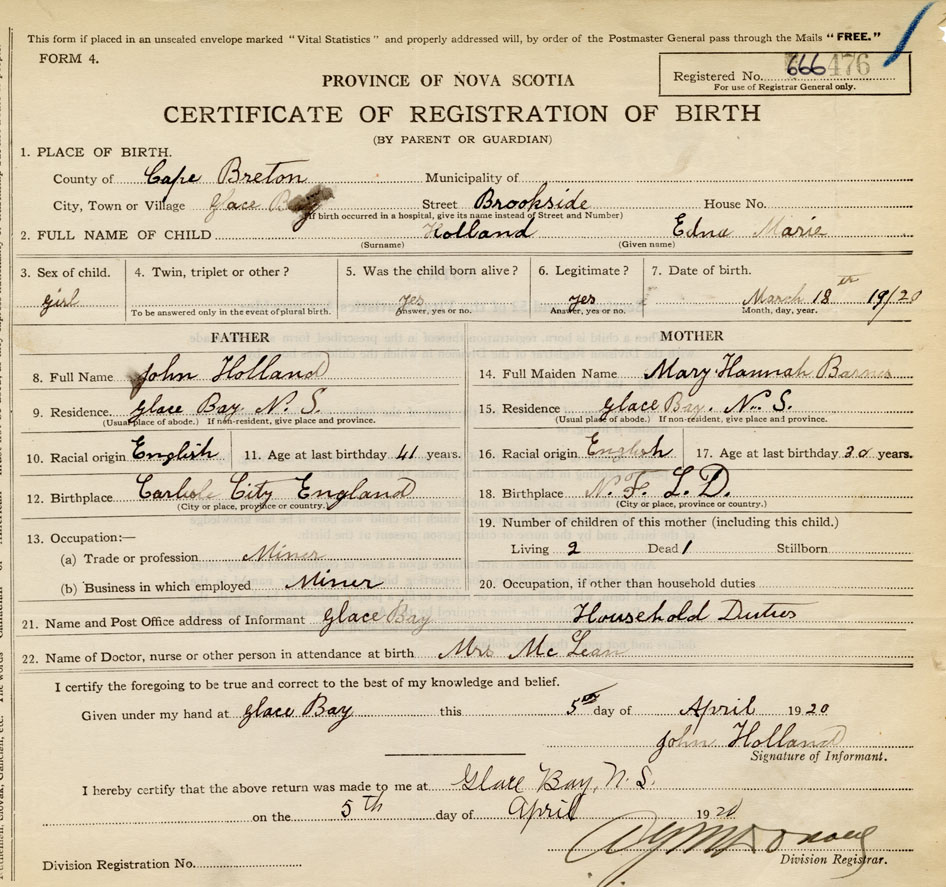 This form if placed in an unsealed envelope marked "Vital Statistics" and properly addressed will, by order of the Postmaster General pass through the Mails "FREE."
FORM 4.
Registered No. 666 476
For use of Registrar General only.
PROVINCE OF NOVA SCOTIA
CERTIFICATE OF REGISTRATION OF BIRTH
(BY PARENT OR GUARDIAN)
1. PLACE OF BIRTH.
County of Cape Breton Municipality of
City, Town or Village Glace Bay Street Brookside House No.
(If birth occurred in a hospital, give its name instead of Street and Number)
2. FULL NAME OF CHILD Holland Edna Marie
(Surname) (Given name)
3. Sex of child. 4. Twin, triplet or other? 5. Was the child born alive? 6. Legitimate? 7. Date of birth.
girl yes yes March 18th 19/20
To be answered only in the event of plural birth. Answer, yes or no. Answer, yes or no. Month, day, year.
FATHER MOTHER
8. Full Name John Holland 14. Full Maiden Name Mary Hannah Barnes
9. Residence. Glace Bay. N. S. 15. Residence Glace Bay. N. S.
(Usual place of abode.) If non-resident, give place and province. (Usual place of abode.) If non-resident, give place and province.
10. Racial origin English 11. Age at last birthday 41 years. 16. Racial origin English 17. Age at last birthday 30 years.
12. Birthplace Carlisle City England 18. Birthplace N. F. L. D.
(City or place, province or country.) (City or place, province or country.)
13. Occupation:— 19. Number of children of this mother (including this child.)
(a) Trade or profession Miner Living 2 Dead 1 Stillborn
(b) Business in which employed Miner 20. Occupation, if other than household duties
21. Name and Post Office address of Informant Glace Bay Household Duties
22. Name of Doctor, nurse or other person in attendance at birth Mrs McLean
I certify the foregoing to be true and correct to the best of my knowledge and belief.
Given under my hand at Glace Bay this 5th day of April 1920
John Holland
Signature of Informant.
I hereby certify that the above return was made to me at Glace Bay, N. S.
on the 5th day of April 1920
Division Registrar.
Division Registration No.